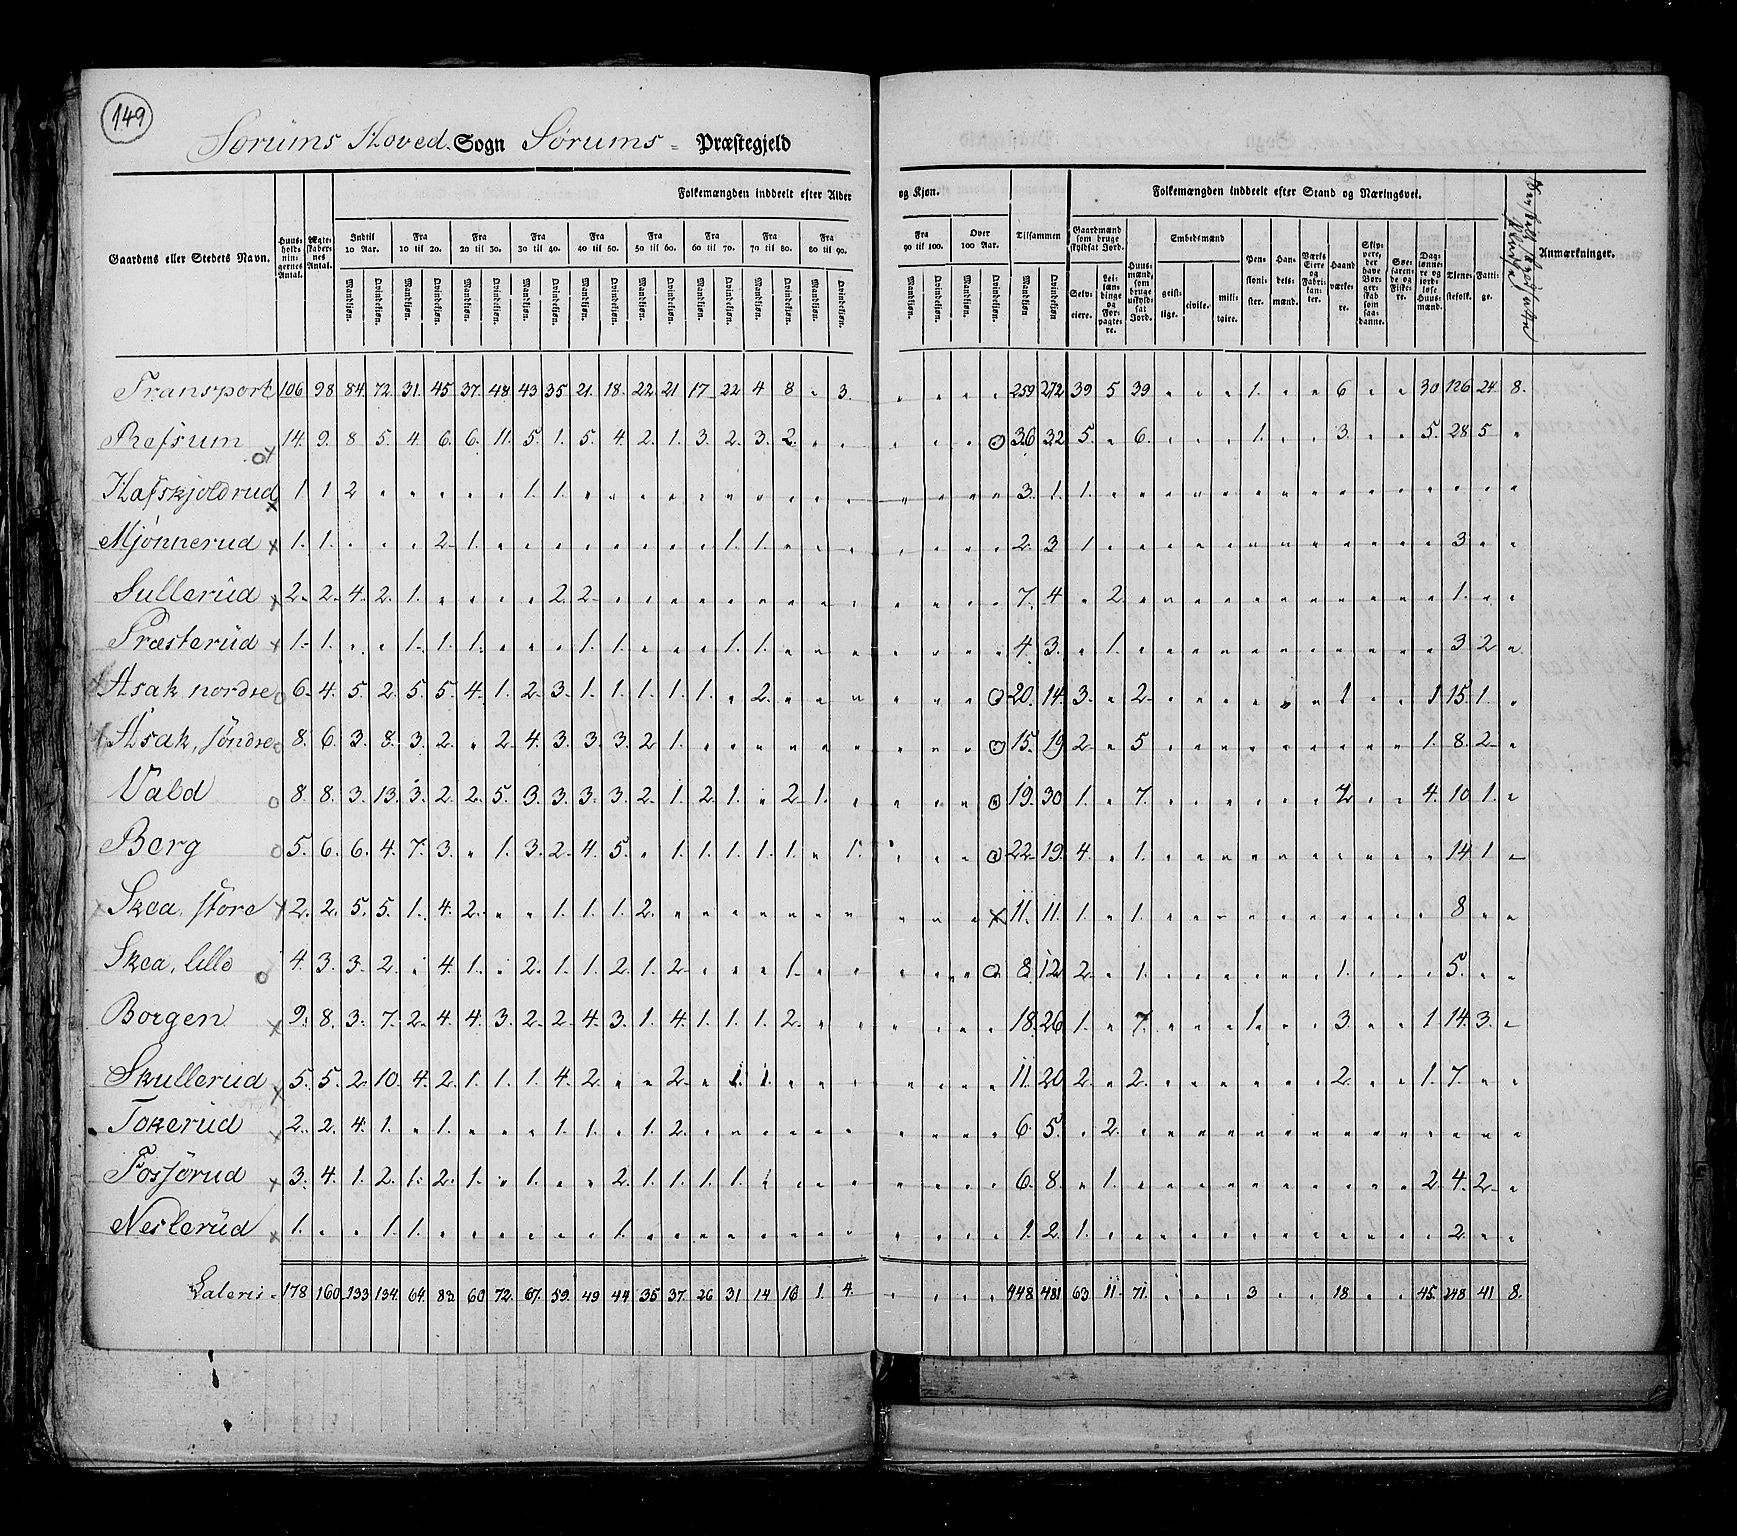 149
Sørums Hoved Sogn Sørums = Præstegjeld
Gaardens eller Stedets Navn. Huus-holdnin-gernes Antal. Ægte-skaber-nes Antal. Folkemængden inddeelt efter Alder og Kjøn. Tilsammen Folkemængden inddeelt efter Stand og Næringsvei. Anmærkninger.
Indtil 10 Aar. Fra 10 til 20. Fra 20 til 30. Fra 30 til 40. Fra 40 til 50. Fra 50 til 60. Fra 60 til 70. Fra 70 til 80. Fra 80 til 90. Fra 90 til 100. Over 100 Aar.
Mandkjøn. Qvindekjøn. Mandkjøn. Qvindekjøn. Mandkjøn. Qvindekjøn. Mandkjøn. Qvindekjøn. Mandkjøn. Qvindekjøn. Mandkjøn. Qvindekjøn. Mandkjøn. Qvindekjøn. Mandkjøn. Qvindekjøn. Mandkjøn. Qvindekjøn. Mandkjøn. Qvindekjøn. Mandkjøn. Qvindekjøn. Mandkjøn Qvindekjøn
Gaardmænd som bruge skyldsat Jord. Selv-eiere. Lei-lændinge og For-pagte-re. Huus-mænd, som bruge uskyld-sat Jord. Embedsmænd geist-lige. civile. mili-taire. Pen-sioni-ster. Han-dels-mænd. Værks Eiere og Fabri-kan-ter. Haand værke-re. Skip-pere, der have Bor-ger-skab som saa-danne. Søe-farende og Fiske-re. Dag-lønne-re og jord-løse Huus-mænd. Tjene-stefolk. Fatti-ge.
Transport 106 98 84. 72. 31. 45. 37. 48. 43. 35. 21. 18. 22. 21. 17. 22. 4. 8. " 3. " " " " 259 272 39 5 39 " " " 1. " " 6 " " 30 126 24 8.
Refsum 14. 9. 8. 5. 4. 6. 6. 11. 5. 1. 5. 4. 2. 1. 3. 2. 3. 2. " " " " " " 36 32 5. " 6. " " " 1. " " 3. " " 5. 28 5 "
Hafskjoldrud 1. 1. 2 " " " " " 1. 1. " " " " " " " " " " " " " " 3. 1. 1. " " " " " " " " " " " " " " "
Mjønnerud 1. 1. " " " 2. 1. " " " " " " " " 1. 1. " " " " " " " 2. 3 1. " " " " " " " " " " " " 3. " "
Sullerud 2. 2. 4. 2. 1. " " " " 2. 2. " " " " " " " " " " " " " 7. 4. " 2. " " " " " " " " " " " 1. " "
Præsterud 1. 1. " " 1. 1. 1. " " " 1. 1. " " " 1. 1. " " " " " " " 4. 3. " 1. " " " " " " " " " " " 3 2. "
Asak nordre 6. 4. 5. 2. 5. 5. 4. 1. 2. 3. 1. 1. 1. 1. 1. " 2. " " " " " " " 20. 14. 3. " 2. " " " " " " 1 " " 1 15. 1. "
Asak, søndre 8. 6. 3. 8. 3. 2. " 2. 4. 3. 3. 3. 2. 1. " " " " " " " " " " 15. 19 2. " 5 " " " " " " " " " 1. 8. 2. "
Vald 8. 8. 3. 13. 3. 2. 2. 5. 3. 3. 3. 3. 2. 1. 2. 1. " 2. 1. " " " " " 19. 30 1. " 7. " " " " " " 2. " " 4. 10 1. "
Berg 5. 6. 6. 4. 7. 3. " 1. 3. 2. 4. 5. " 1. 1. 1. 1. 1. " 1. " " " " 22 19. 4. " 1. " " " " " " " " " " 14 1. "
Skea, store 2. 2. 5. 5. 1. 4. 2. " " 1. 1. 1. 2. " " " " " " " " " " " 11. 11. 1. " 1. " " " " " " " " " " 8 " "
Skea, lille 4. 3. 3. 2. " 4. 1. " 2. 1. 1. 2. 1. 2. " " " 1. " " " " " " 8. 12 2. " 1. " " " " " " 1. " " " 5. " "
Borgen 9. 8. 3. 7. 2. 4. 4. 3. 2. 2. 4. 3. 1. 4. 1. 1. 1. 2. " " " " " " 18. 26 1. " 7. " " " 1. " " 3. " " 1 14. 3. "
Skullerud 5. 5. 2. 10. 4. 2. 1. 1. 1. 4. 2. " " 2. " 1. 1. " " " " " " " 11. 20 2. " 2. " " " " " " 2. " " 1. 7. " "
Tokerud 2. 2. 4. 1. " 1. " " " 1. 1. " 1. 2. " " " " " " " " " " 6. 5. " 2. " " " " " " " " " " " " " "
Fosserud 3. 4. 1. 2. 1. 2. 1. " 1. " " 2. 1. 1. 1. 1. " " " " " " " " 6. 8. " 1. " " " " " " " " " " 2. 4. 2. "
Neslerud 1. " " 1. 1. " " " " " " 1. " " " " " " " " " " " " 1. 2. 1. " " " " " " " " " " " " 2. " "
Lateris 178 160 133 134. 64. 83. 60 72. 67. 59. 49 44. 35. 37. 26 31. 14. 16 1. 4. " " " " 448. 481 63 11. 71. " " " 3 " " 18. " " 45. 248 41 8.